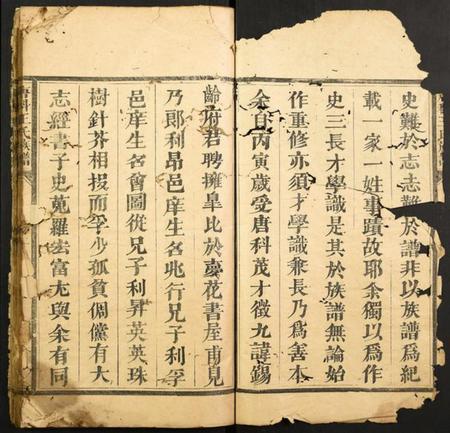 史難於志志難於譜非以族譜爲紀
載一家一姓事蹟故耶余獨以爲作
史三長才學識是其於族譜無論始
作重修亦須才學識兼長乃爲善本
余自丙寅歲受唐科茂才徵九諱錫
齡府君聘擁皋比於蘂花書屋甫見
乃郎利昂邑庠生名兆行兄子利孚
邑庠生名會圖從兄子利昇英英珠
樹針芥相投而孚少孤貧倜儻有大
志經書子史蒐羅宏富尤與余有同
唐科王氏族譜